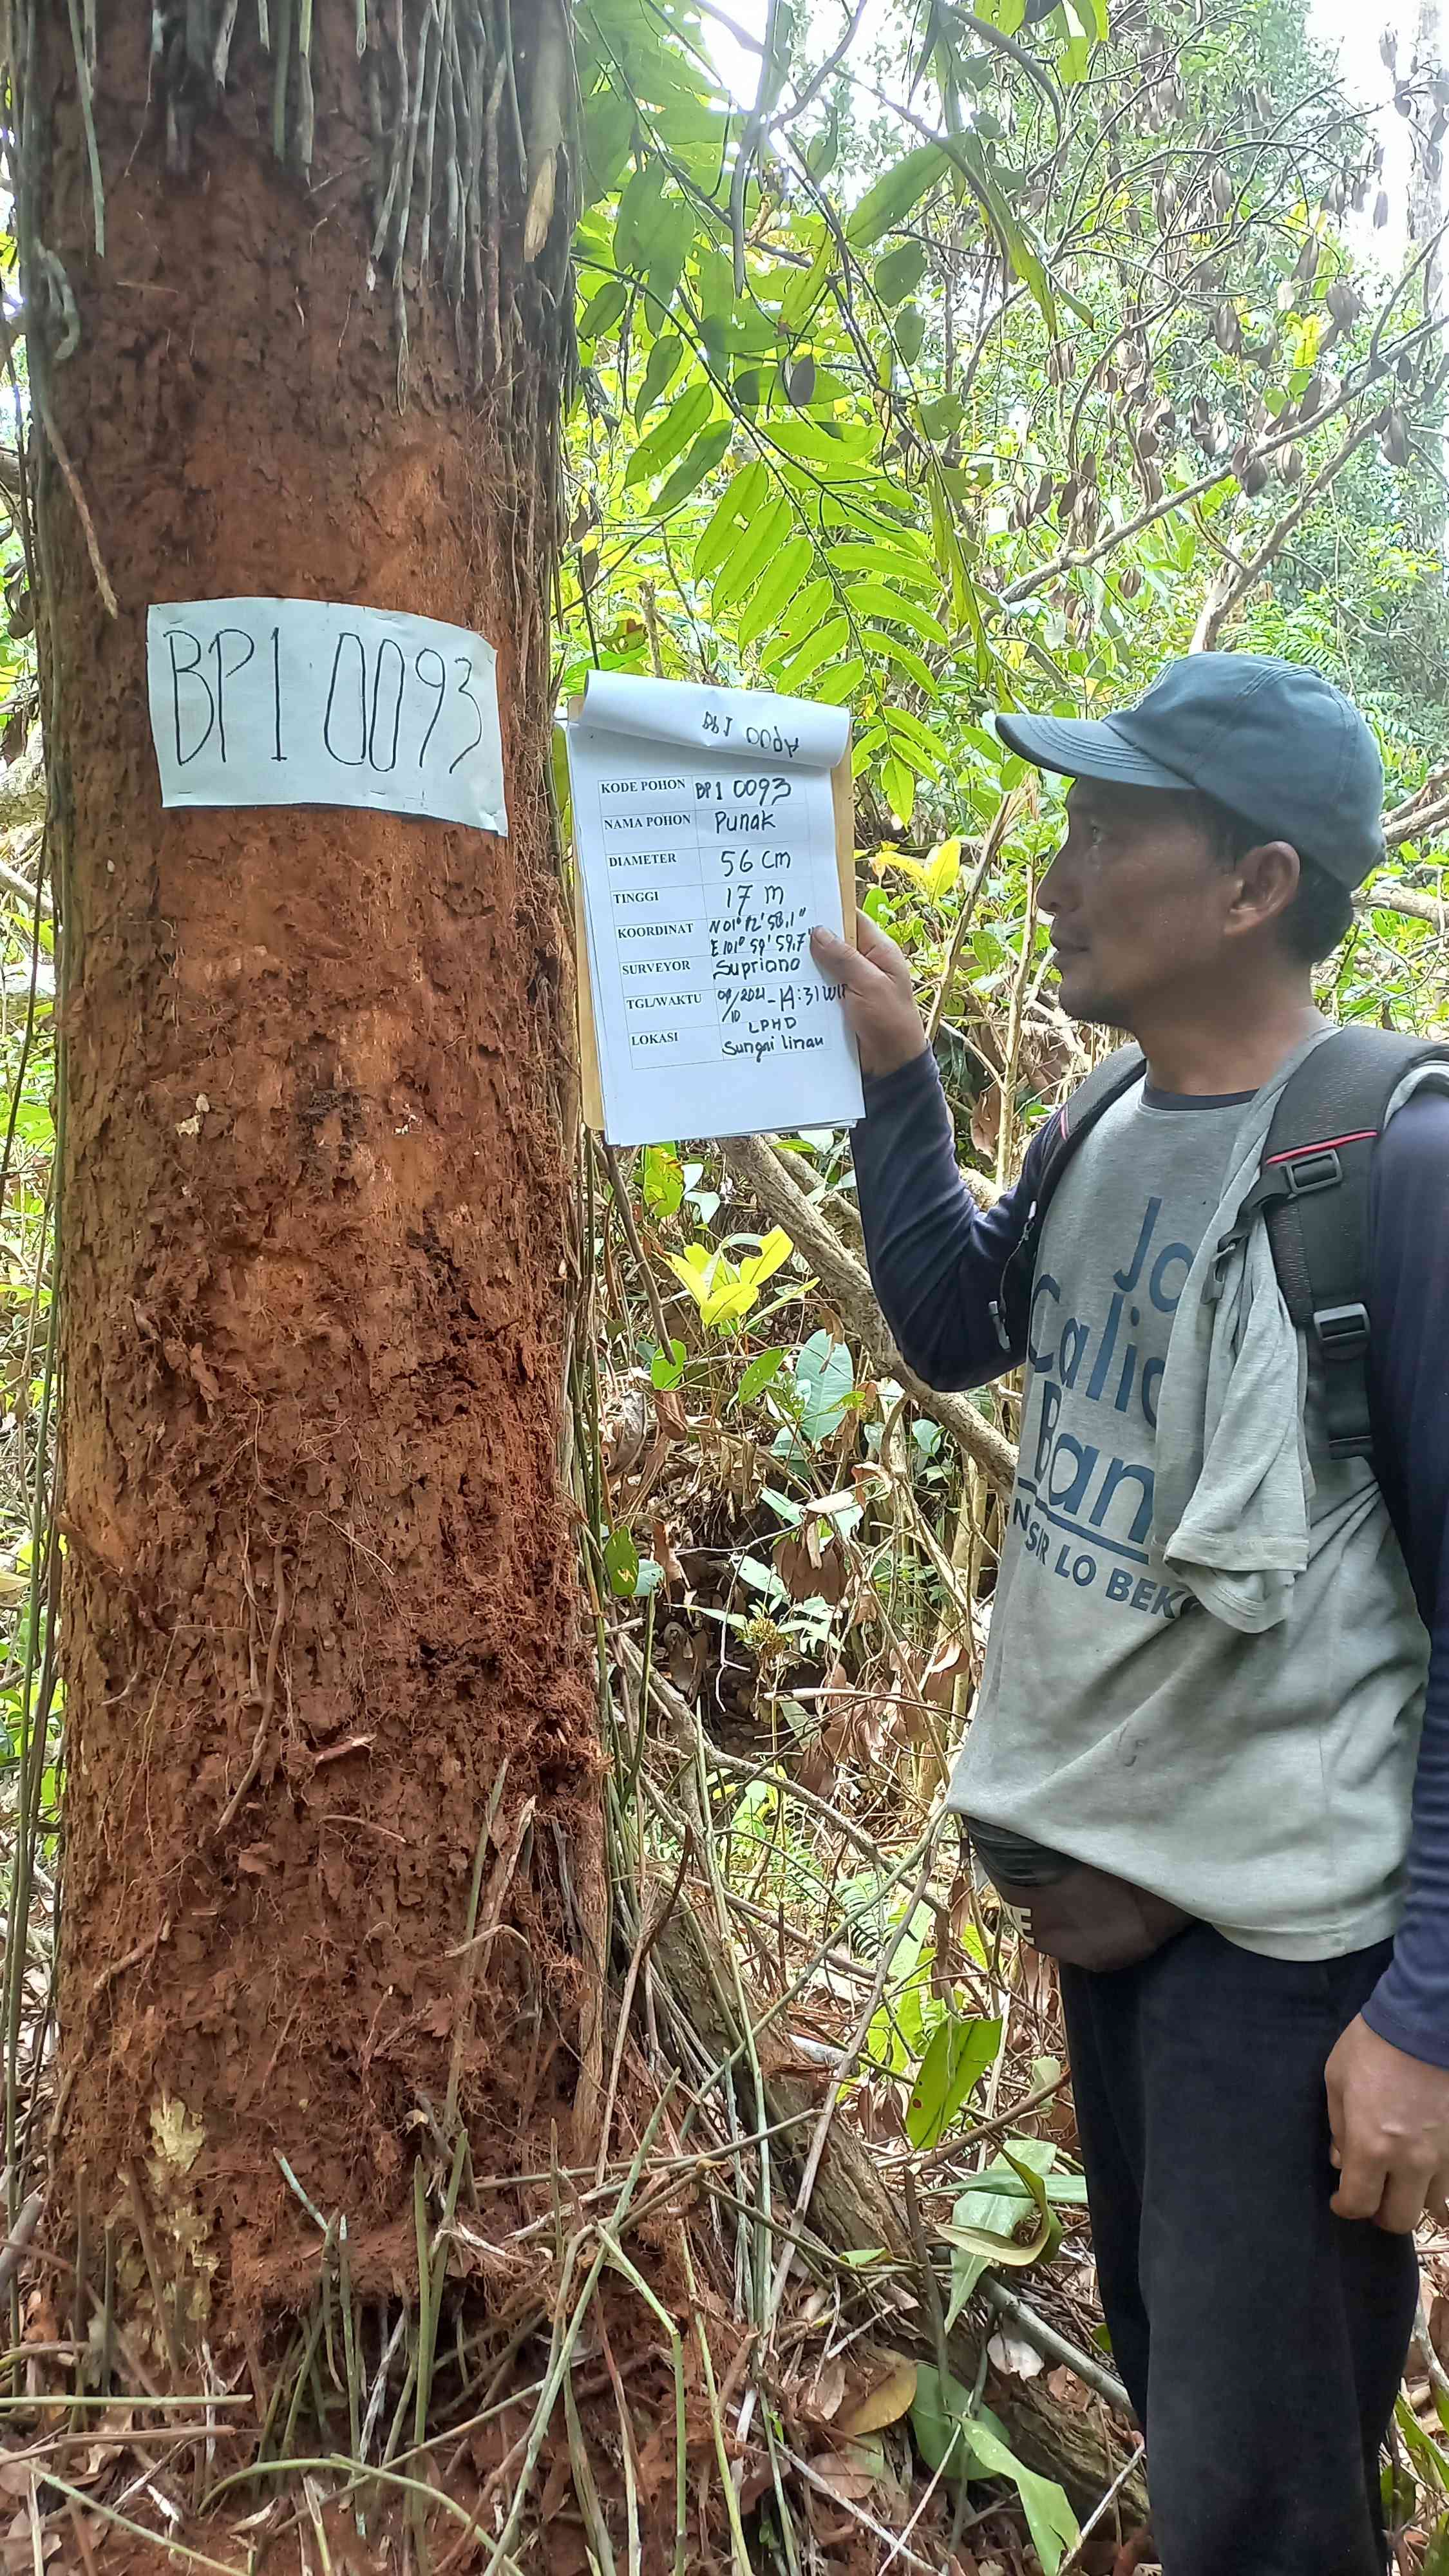 BP1 0093
KODE POHON BP1 0093
NAMA POHON Punak
DIAMETER 56 cm
TINGGI 17 m
KOORDINAT N 01° 12' 58,1"
E 101° 59' 59,7"
SURVEYOR Supriono
TGL/WAKTU 09/10/2021 - 14:31 WIB
LOKASI LPHD
Sungai linau
Jo
Calic
Ban
NSIR LO BEK